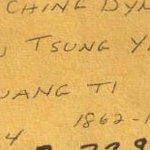 CHING DYN
TSUNG Y
UANG TI
1862-1
4